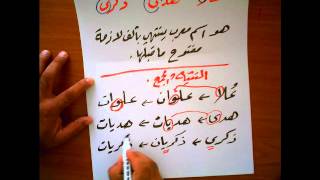 علا هدى ذكرى
هو اسم معرب ينتهي بألف لازمة
مفتوح ما قبلها .
التثنية والجمع
عُلا ← علوان ← علوات
هدى ← هديان ← هديات
ذكرى ← ذكريان ← ذكريات